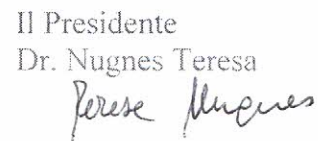 Il Presidente
Dr. Nugnes Teresa
Terese Nugnes